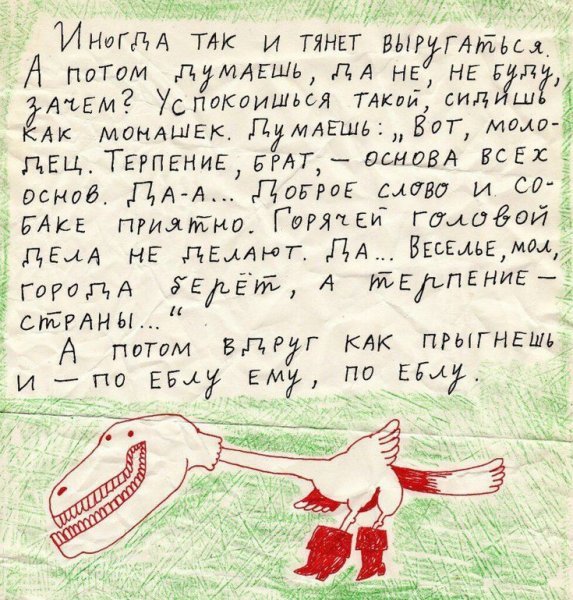 Иногда так и тянет выругаться.
А потом думаешь, да не, не буду,
зачем? Успокоишься такой, сидишь
как монашек. Думаешь: „Вот, моло-
дец. Терпение, брат, – основа всех
основ. Да-а... Доброе слово и со-
баке приятно. Горячей головой
дела не делают. Да... Веселье, мол,
города берёт, а терпение –
страны..."
А потом вдруг как прыгнешь
и – по еблу ему, по еблу.